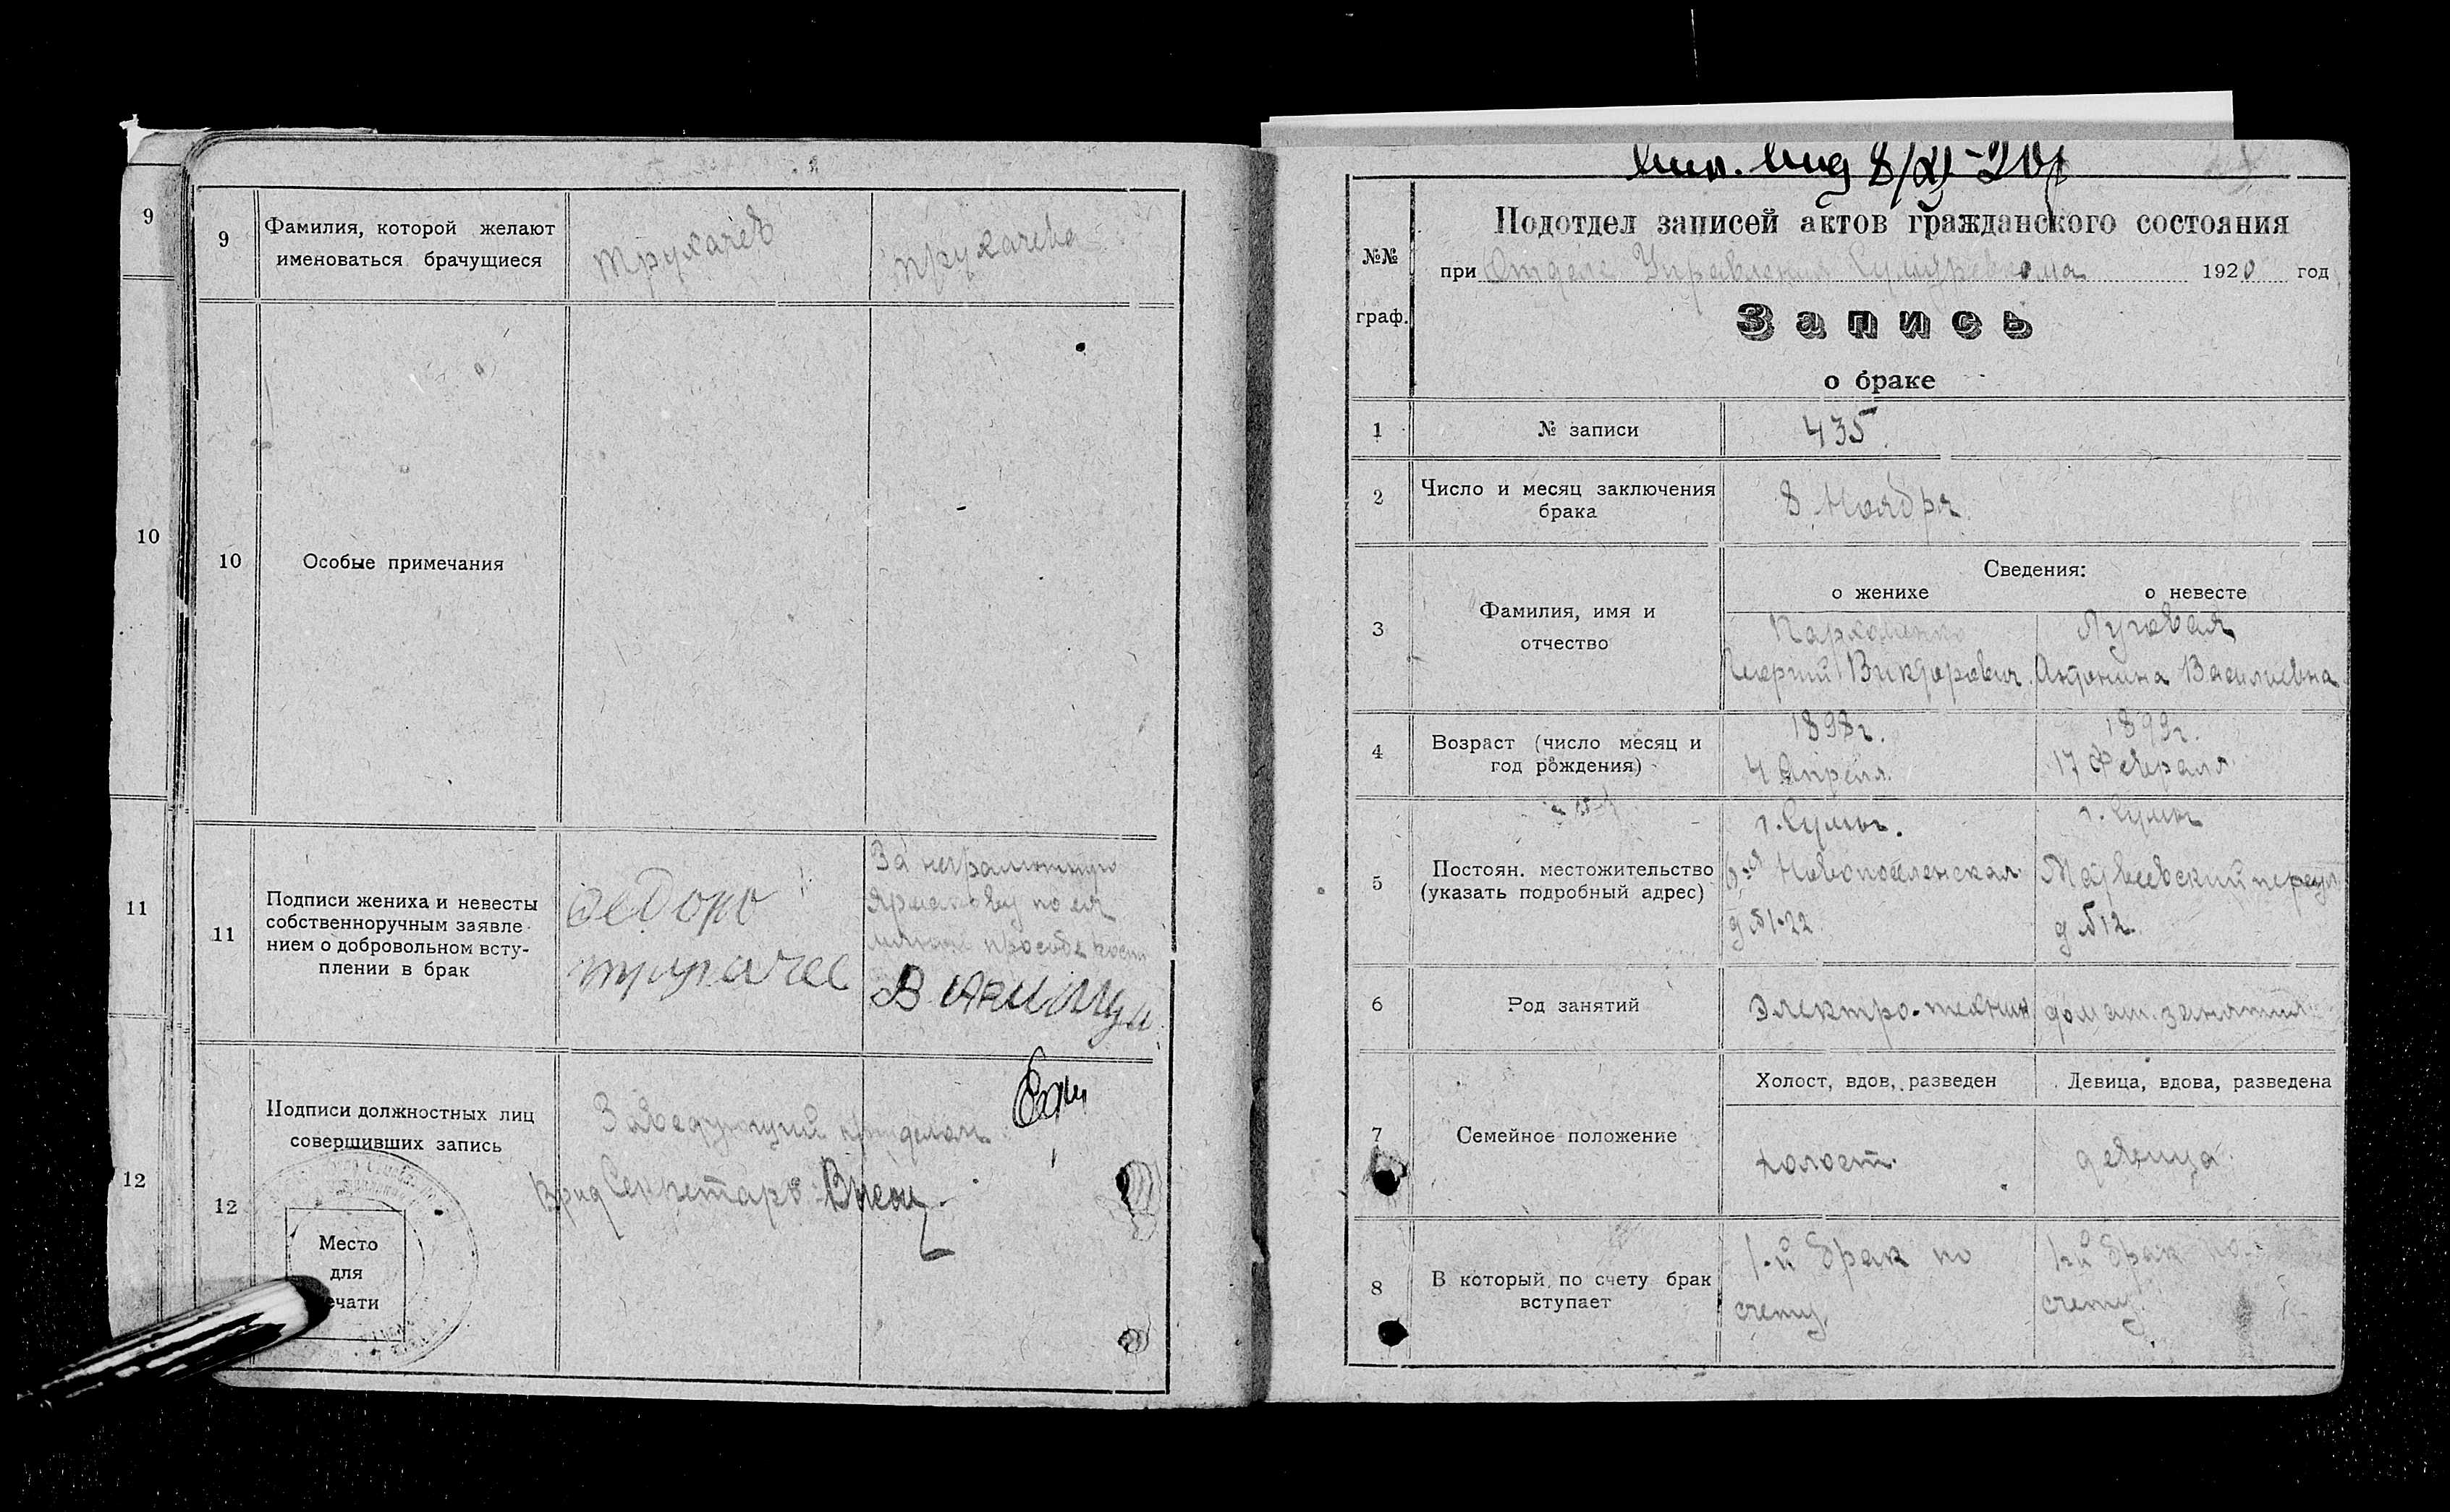 9
10
11
12
9
Фамилия, которой желают
именоваться брачущиеся
Трухачев
Трухачева
10
Особые примечания
11
Подписи жениха и невесты
собственноручным заявле-
нием о добровольном всту-
плении в брак
Федоръ
Трухачев
За неграмотную
по ея
личной просьбе
12
Подписи должностных лиц
совершивших запись
Место
для
ечати
Заведующий
Врид Секретаря
8/XI-20г
№№
граф.
Подотдел записей актов гражданского состояния
при Отделе Управления Сумуревкома 1920 год
Запись
о браке
1
№ записи
435.
2
Число и месяц заключения
брака
8 Ноября.
3
Фамилия, имя и
отчество
Сведения:
о женихе
о невесте
Пархоменко
Георгий Викторович.
Луговая
Антонина Василиевна
4
Возраст (число месяц и
год рождения)
1898г.
4 Апреля.
1899г.
17 Февраля
5
Постоян. местожительство
(указать подробный адрес)
г. Сумы.
д №22
г. Сумы
переул
д №12.
6
Род занятий
Электро-техник
домаш. занятия
7
Семейное положение
Холост, вдов, разведен
Девица, вдова, разведена
холост.
девица.
8
В который по счету брак
вступает
1-й брак по
счету.
1-й брак по
счету.